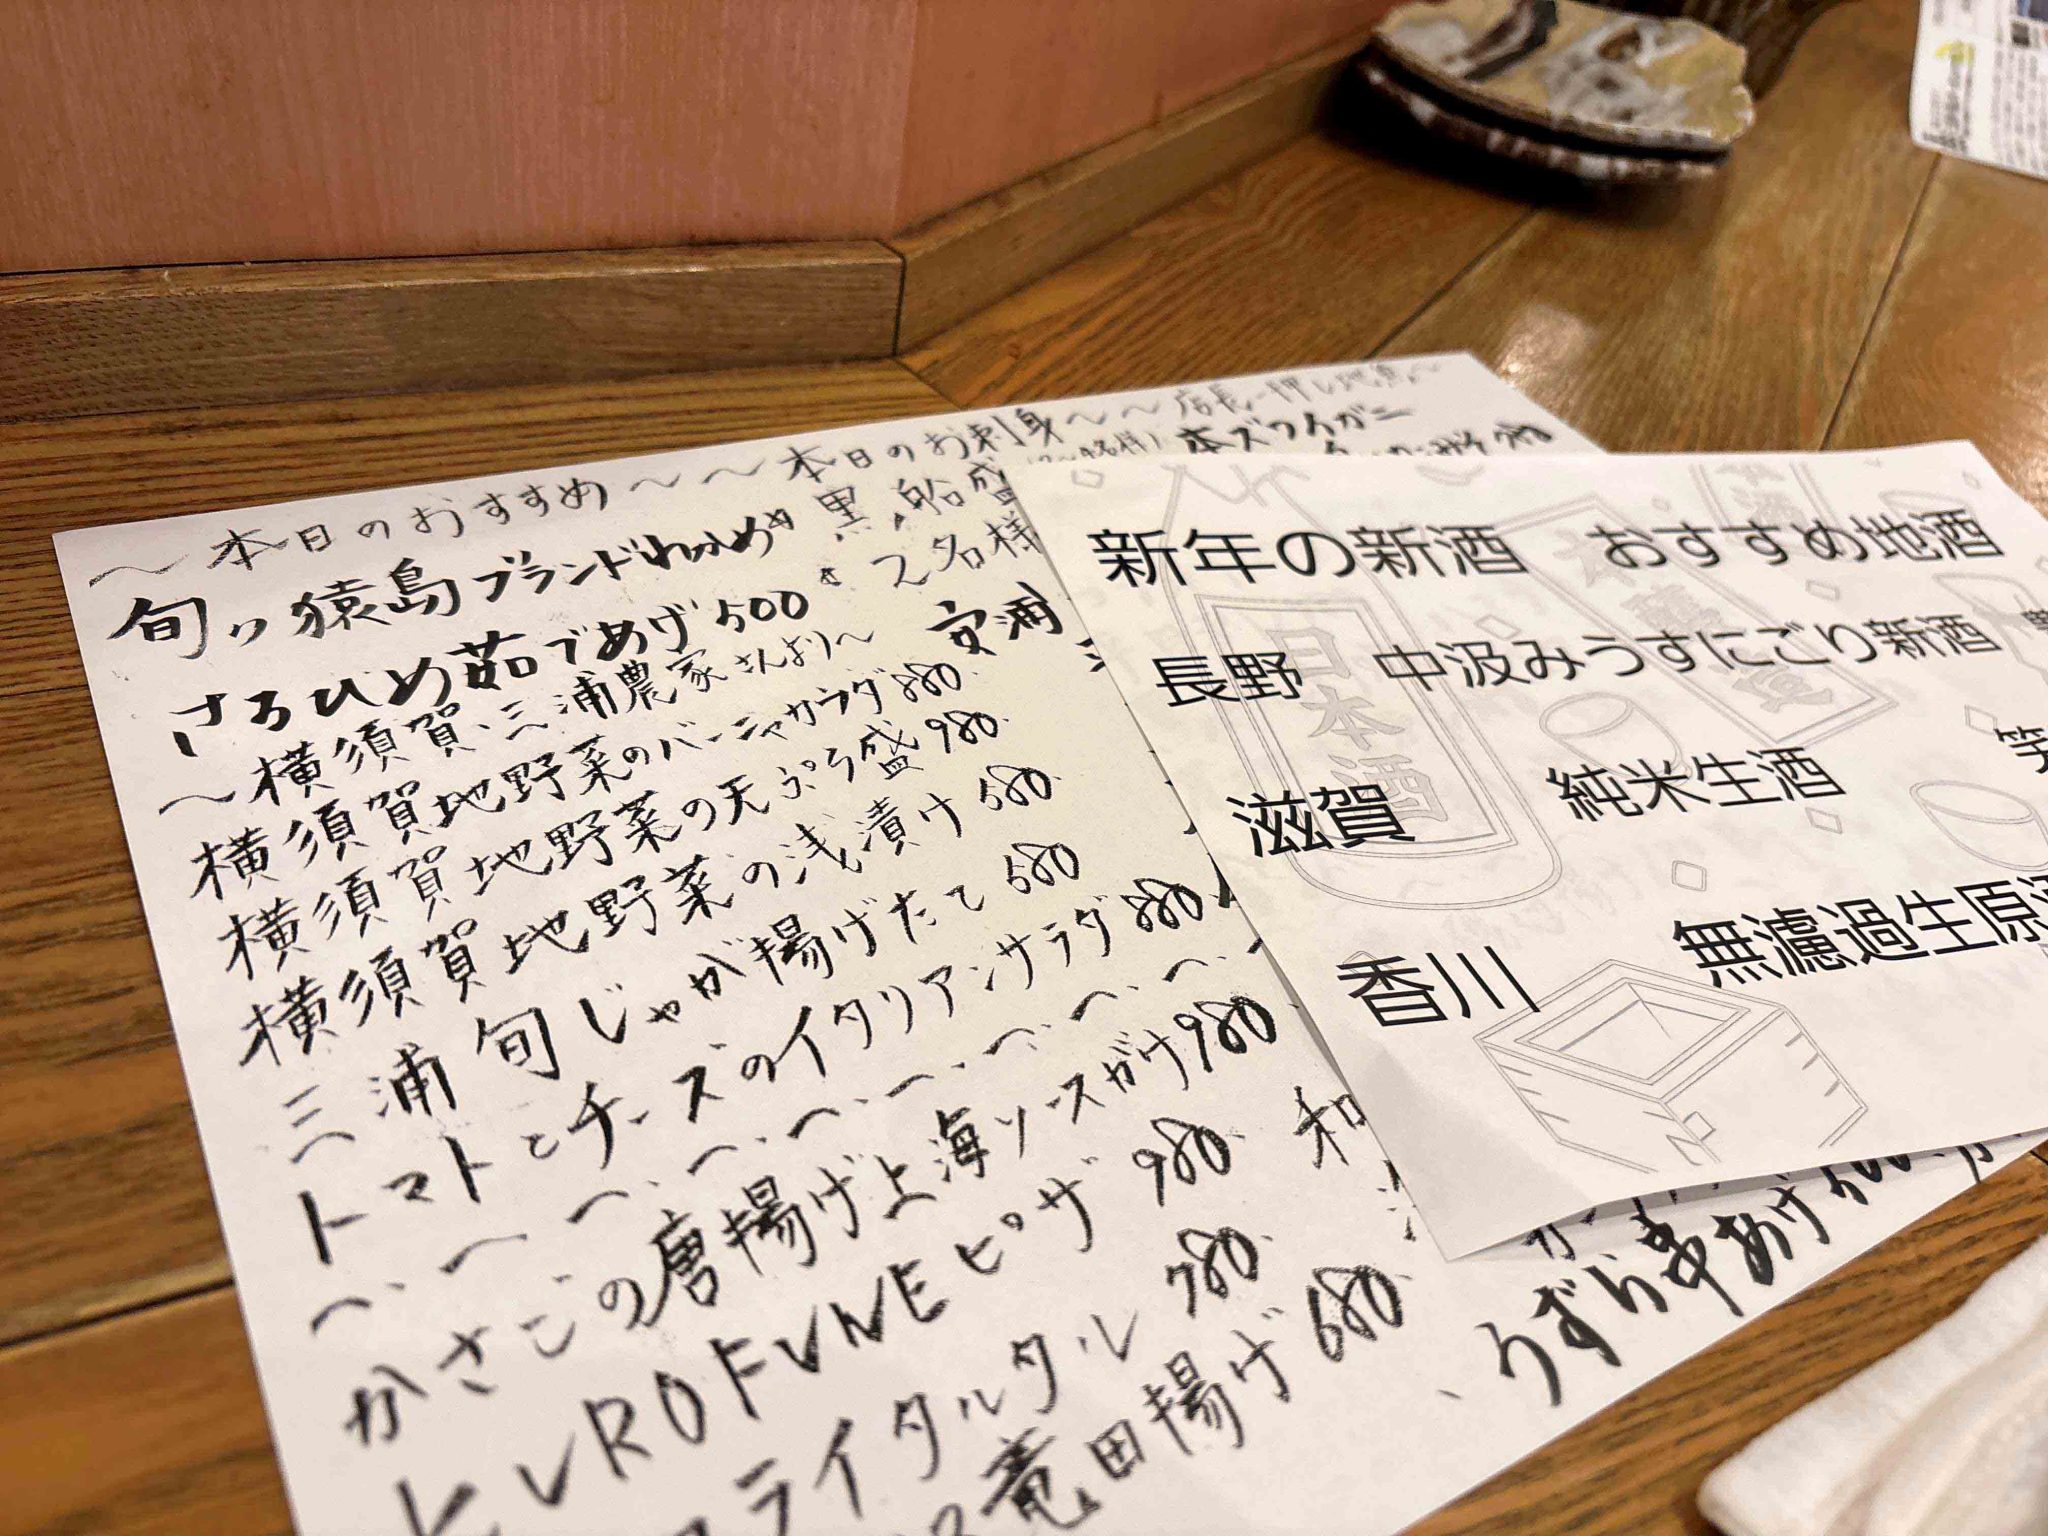 ～本日のおすすめ～
旬ッ猿島ブランドわかめ
さるひめ茹であげ500
～横須賀.三浦農家さんより～
横須賀地野菜のバーニャカウダ880.
横須賀地野菜の天ぷら盛980.
横須賀地野菜の浅漬け580.
三浦旬じゃが揚げたて580
トマトとチーズのイタリアンサラダ880.
かさごの唐揚げ上海ソースがけ980.
KUROFUNEピザ980.
フライタルタル780.
竜田揚げ680.
～本日のお刺身～
黒船盛
2名様
～店長一押し地魚～
本ズワイガニ
和
うずら串あげ
新年の新酒 おすすめ地酒
長野 中汲みうすにごり新酒
滋賀 純米生酒 笑
香川 無濾過生原酒
日本酒